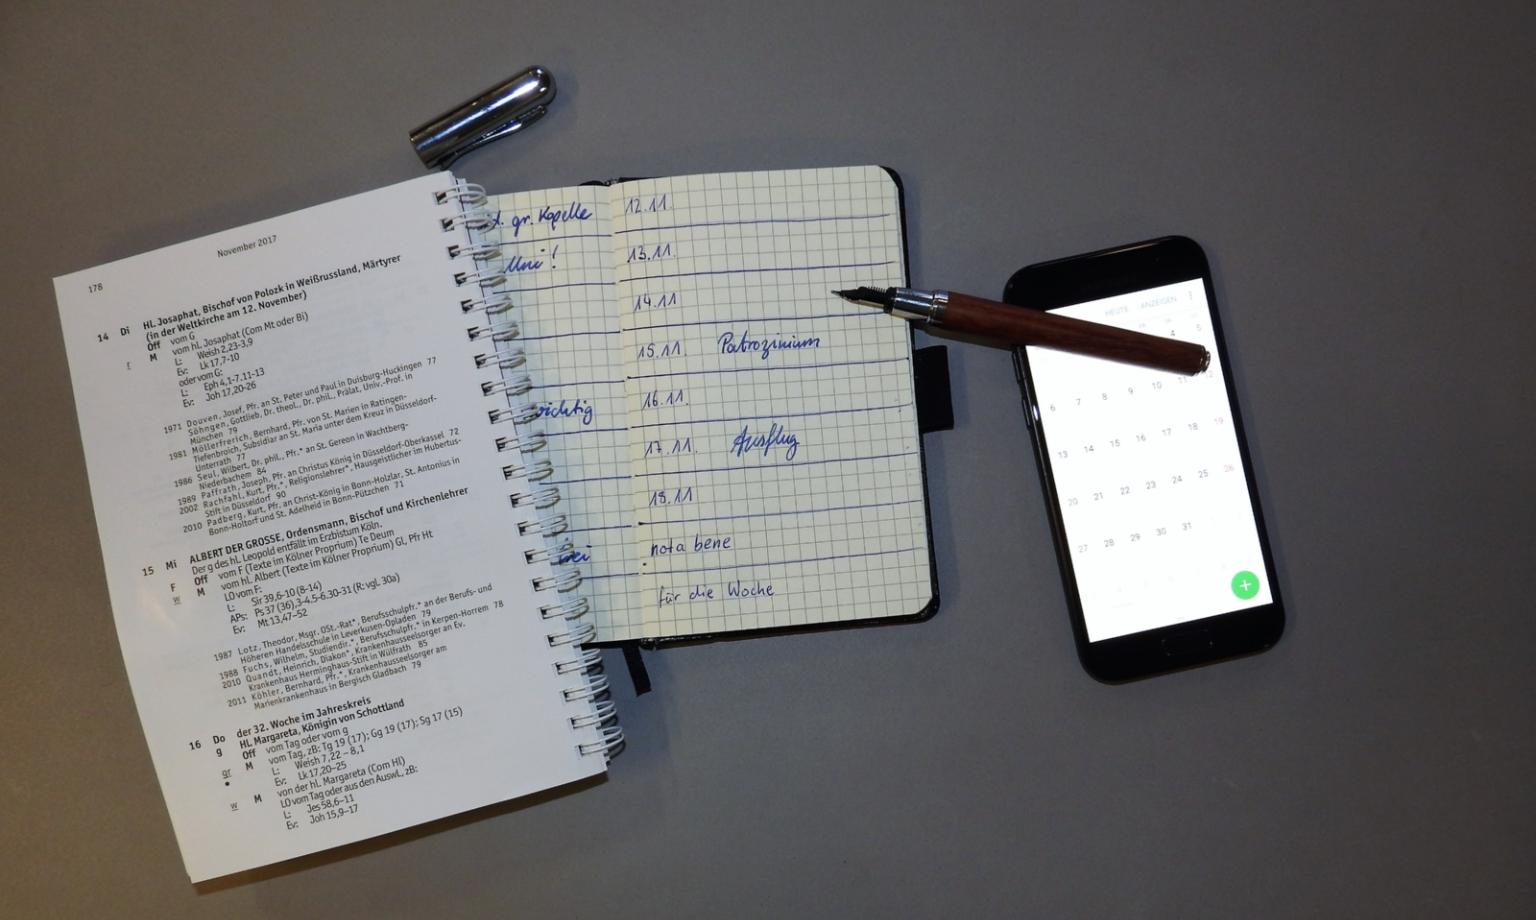 November 2017
178
14 Di Hl. Josaphat, Bischof von Polozk in Weißrussland, Märtyrer
(in der Weltkirche am 12. November)
Off vom G
r M vom hl. Josaphat (Com Mt oder Bi)
L: Weish 2,23-3,9
Ev: Lk 17,7-10
oder vom G:
L: Eph 4,1-7.11-13
Ev: Joh 17,20-26
1971 Douven, Josef, Pfr. an St. Peter und Paul in Duisburg-Huckingen 77
Söhngen, Gottlieb, Dr. theol., Dr. phil., Prälat, Univ.-Prof. in
München 79
1981 Möllerfrerich, Bernhard, Pfr. von St. Marien in Ratingen-
Tiefenbroich, Subsidiar an St. Maria unter dem Kreuz in Düsseldorf-
Unterrath 77
1986 Seul, Wilbert, Dr. phil., Pfr.* an St. Gereon in Wachtberg-
Niederbachem 84
1989 Paffrath, Joseph, Pfr. an Christus König in Düsseldorf-Oberkassel 72
2002 Rachfahl, Kurt, Pfr.*, Religionslehrer*, Hausgeistlicher im Hubertus-
Stift in Düsseldorf 90
2010 Padberg, Kurt, Pfr. an Christ-König in Bonn-Holzlar, St. Antonius in
Bonn-Holtorf und St. Adelheid in Bonn-Pützchen 71
15 Mi ALBERT DER GROSSE, Ordensmann, Bischof und Kirchenlehrer
Der g des hl. Leopold entfällt im Erzbistum Köln.
F Off vom F (Texte im Kölner Proprium) Te Deum
w M vom hl. Albert (Texte im Kölner Proprium) Gl, Pff Ht
LO vom F:
L: Sir 39,6-10 (8-14)
APs: Ps 37 (36),3-4.5-6.30-31 (R: vgl. 30a)
Ev: Mt 13,47-52
1987 Lotz, Theodor, Msgr. OSt.-Rat*, Berufsschulpfr.* an der Berufs- und
Höheren Handelsschule in Leverkusen-Opladen 79
1988 Fuchs, Wilhelm, Studiendir.*, Berufsschulpfr.* in Kerpen-Horrem 78
2010 Quandt, Heinrich, Diakon*, Krankenhausseelsorger an Ev.
Krankenhaus Herminghaus-Stift in Wülfrath 85
2011 Köhler, Bernhard, Pfr.*, Krankenhausseelsorger am
Marienkrankenhaus in Bergisch Gladbach 79
16 Do der 32. Woche im Jahreskreis
g Hl. Margareta, Königin von Schottland
Off vom Tag oder vom g
gr M vom Tag, zB: Tg 19 (17); Gg 19 (17); Sg 17 (15)
L: Weish 7,22 – 8,1
Ev: Lk 17,20–25
w M von der hl. Margareta (Com Hl)
LO vom Tag oder aus den Auswl., zB:
L: Jes 58,6–11
Ev: Joh 15,9–17
gr. Kapelle
wichtig
12.11.
13.11.
14.11
15.11. Patrozinium
16.11.
17.11. Ausflug
18.11
nota bene
für die Woche
HEUTE ANZEIGEN
4 5
6 7 8 9 10 11 12
13 14 15 16 17 18 19
20 21 22 23 24 25 26
27 28 29 30 31
+